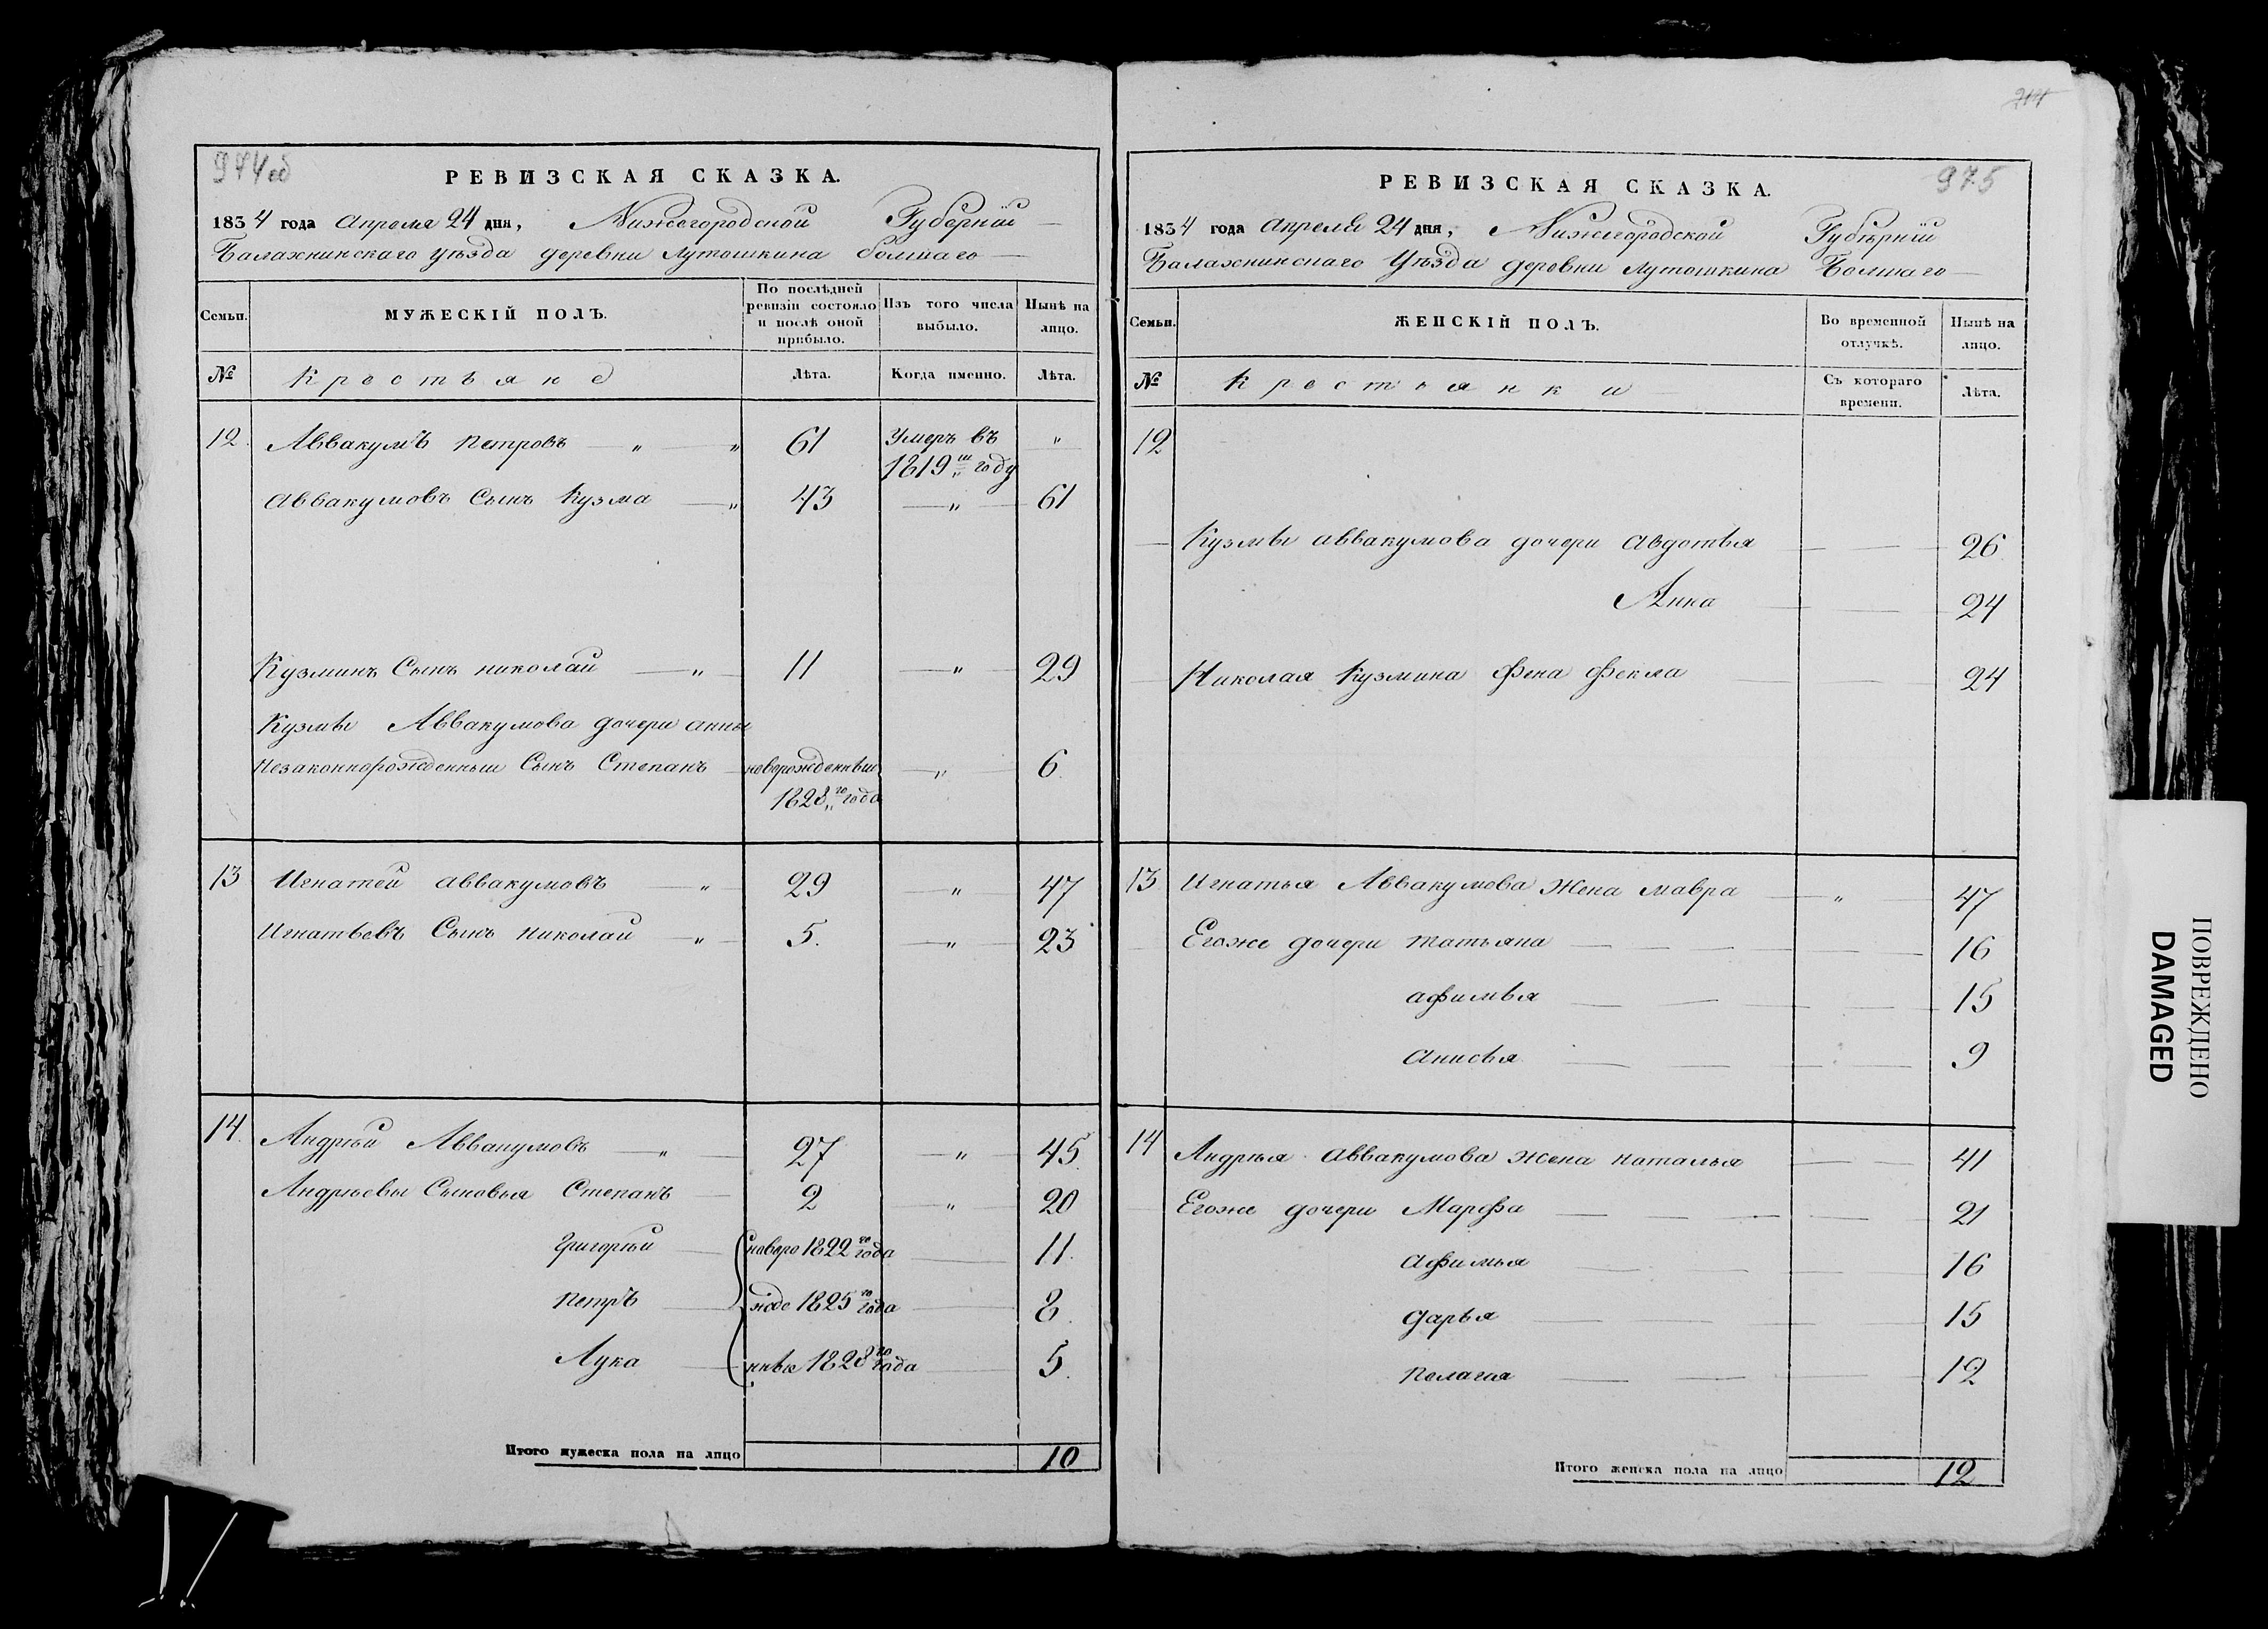 974об
РЕВИЗСКАЯ СКАЗКА.
1834 года Апреля 24 дня, Нижегородской Губерніи
Балахнинскаго уѣзда деревни Лутошкина болшаго
Семьи.
МУЖЕСКІЙ ПОЛЪ.
По послѣдней ревизіи состояло и послѣ оной прибыло.
Изъ того числа выбыло.
Нынѣ на лицо.
№
Крестьяне
Лѣта.
Когда именно.
Лѣта.
12 Аввакумъ Петровъ „ „ 61 Умеръ въ „
1819 го году
Аввакумовъ Сынъ Кузма „ 43 „ 61
Кузминъ Сынъ николай „ 11 „ 29
Кузмы Аввакумова дочери анны
Незаконнорожденныи Сынъ Степанъ новорожденныи „ 6
1828 го года
13 Игнатей аввакумовъ „ 29 „ 47
Игнатьевъ Сынъ николай „ 5. „ 23
14. Андрѣй Аввакумовъ „ 27 „ 45
Андрѣевы Сыновья Степанъ 2 „ 20
Григорѣй новоро 1822 го года 11.
петръ жде 1825 го года 8.
Лука нныя 1828 го года 5.
Итого мужеска пола на лицо 10
975
РЕВИЗСКАЯ СКАЗКА.
1834 года Апреля 24 дня, Нижегородской Губѣрніи
Балахнинскаго Уѣзда деровни Лутошкина Болшаго
Семьи.
ЖЕНСКІЙ ПОЛЪ.
Во временной отлучкѣ.
Нынѣ на лицо.
№
Крестьянки
Съ котораго времени.
Лѣта.
12
Кузмы аввакумова дочери авдотья 26
Анна 24
Николая Кузмина жена фекла 24
13 Игнатья Аввакумова жена мавра „ 47
Егоже дочери татьяна 16
афимья 15
Анисья 9
14 Андрѣя аввакумова жена наталья 41
Егоже дочери Марфа 21
Афимья 16
дарья 15
пелагия 12
Итого женска пола на лицо 12
ПОВРЕЖДЕНО
DAMAGED